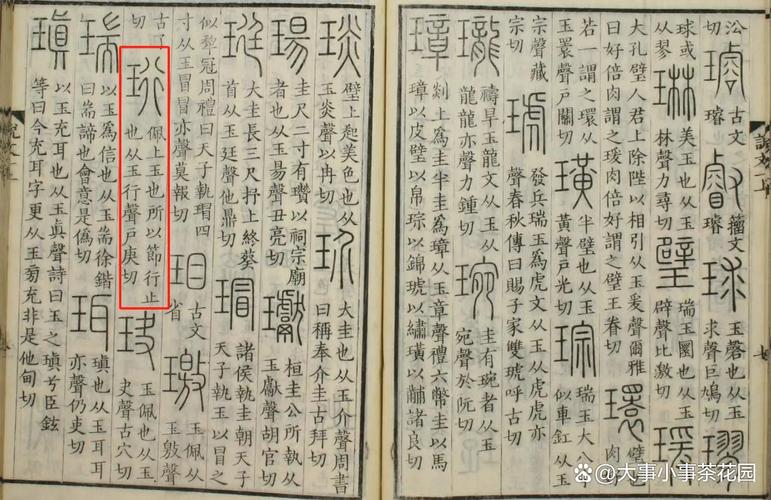 切璿古文璿叡籀文璿球玉磬也从玉求聲巨鳩切璆
球或从翏琳美玉也从玉林聲力尋切璧瑞玉圜也从玉辟聲比激切瑗
大孔璧人君上除陛以相引从玉爰聲爾雅曰好倍肉謂之瑗肉倍好謂之璧王眷切環璧也肉
若一謂之環从玉睘聲戶關切璜半璧也从玉黃聲戶光切琮瑞玉大八寸似車釭从玉
宗聲藏宗切琥發兵瑞玉爲虎文从玉从虎虎亦聲春秋傳曰賜子家雙琥呼古切
瓏禱旱玉龍文从玉从龍龍亦聲力鍾切琬圭有琬者从玉宛聲於阮切
璋剡上爲圭半圭爲璋从玉章聲禮六幣圭以馬璋以皮璧以帛琮以錦琥以繡璜以黼諸良切
琰璧上起美色也从玉炎聲以冉切玠大圭也从玉介聲周書曰稱奉介圭古拜切
瑒圭尺二寸有瓚以祠宗廟者也从玉昜聲丑亮切瓛桓圭公所執从玉獻聲胡官切
珽大圭長三尺抒上終葵首从玉廷聲他鼎切瑁諸侯執圭朝天子天子執玉以冒之
似犂冠周禮曰天子執瑁四寸从玉冒冒亦聲莫報切珇古文省璬玉佩从玉敫聲
古了切珩佩上玉也所以節行止也从玉行聲戶庚切玦玉佩也从玉夬聲古穴切
瑞以玉爲信也从玉耑徐鍇曰耑諦也會意是僞切珥瑱也从玉耳耳亦聲仍吏切
瑱以玉充耳也从玉眞聲詩曰玉之瑱兮臣鉉等曰今充耳字更从玉旁充非是他甸切
头条 @大事小事茶花园